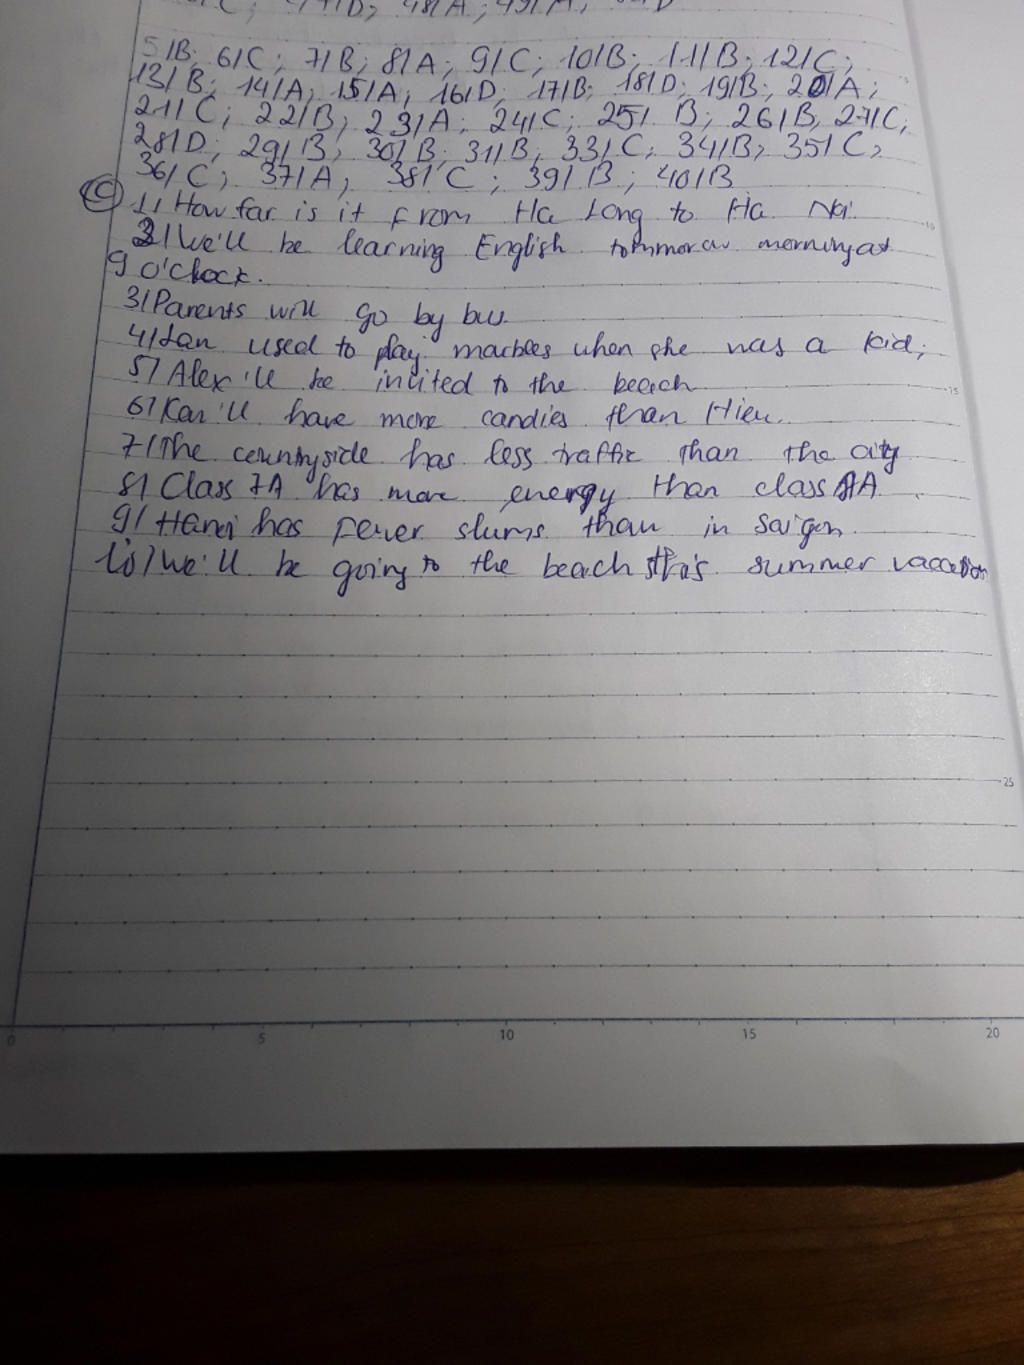 47/D; 48/A; 49/A;
5/B; 6/C; 7/B; 8/A; 9/C; 10/B; 11/B; 12/C;
13/B; 14/A; 15/A; 16/D; 17/B; 18/D; 19/B; 20/A;
21/C; 22/B; 23/A; 24/C; 25/ B; 26/B, 27/C,
28/D; 29/B; 30/B; 31/B; 33/C; 34/B; 35/C;
36/C; 37/A; 38/C; 39/B; 40/B
C 1/ How far is it from Ha Long to Ha Noi.
2/ We'll be learning English tommorow morning at
9 o'clock.
3/ Parents will go by bus.
4/ Lan used to play marbles when she was a kid;
5/ Alex'll be invited to the beach
6/ Kan'll have more candies than Hieu.
7/ The countryside has less traffic than the city
8/ Class 7A has more energy than class A
9/ Hanoi has fewer slums than in Saigon.
10/ We'll be going to the beach this summer vaccation
10
15
25
0 5 10 15 20